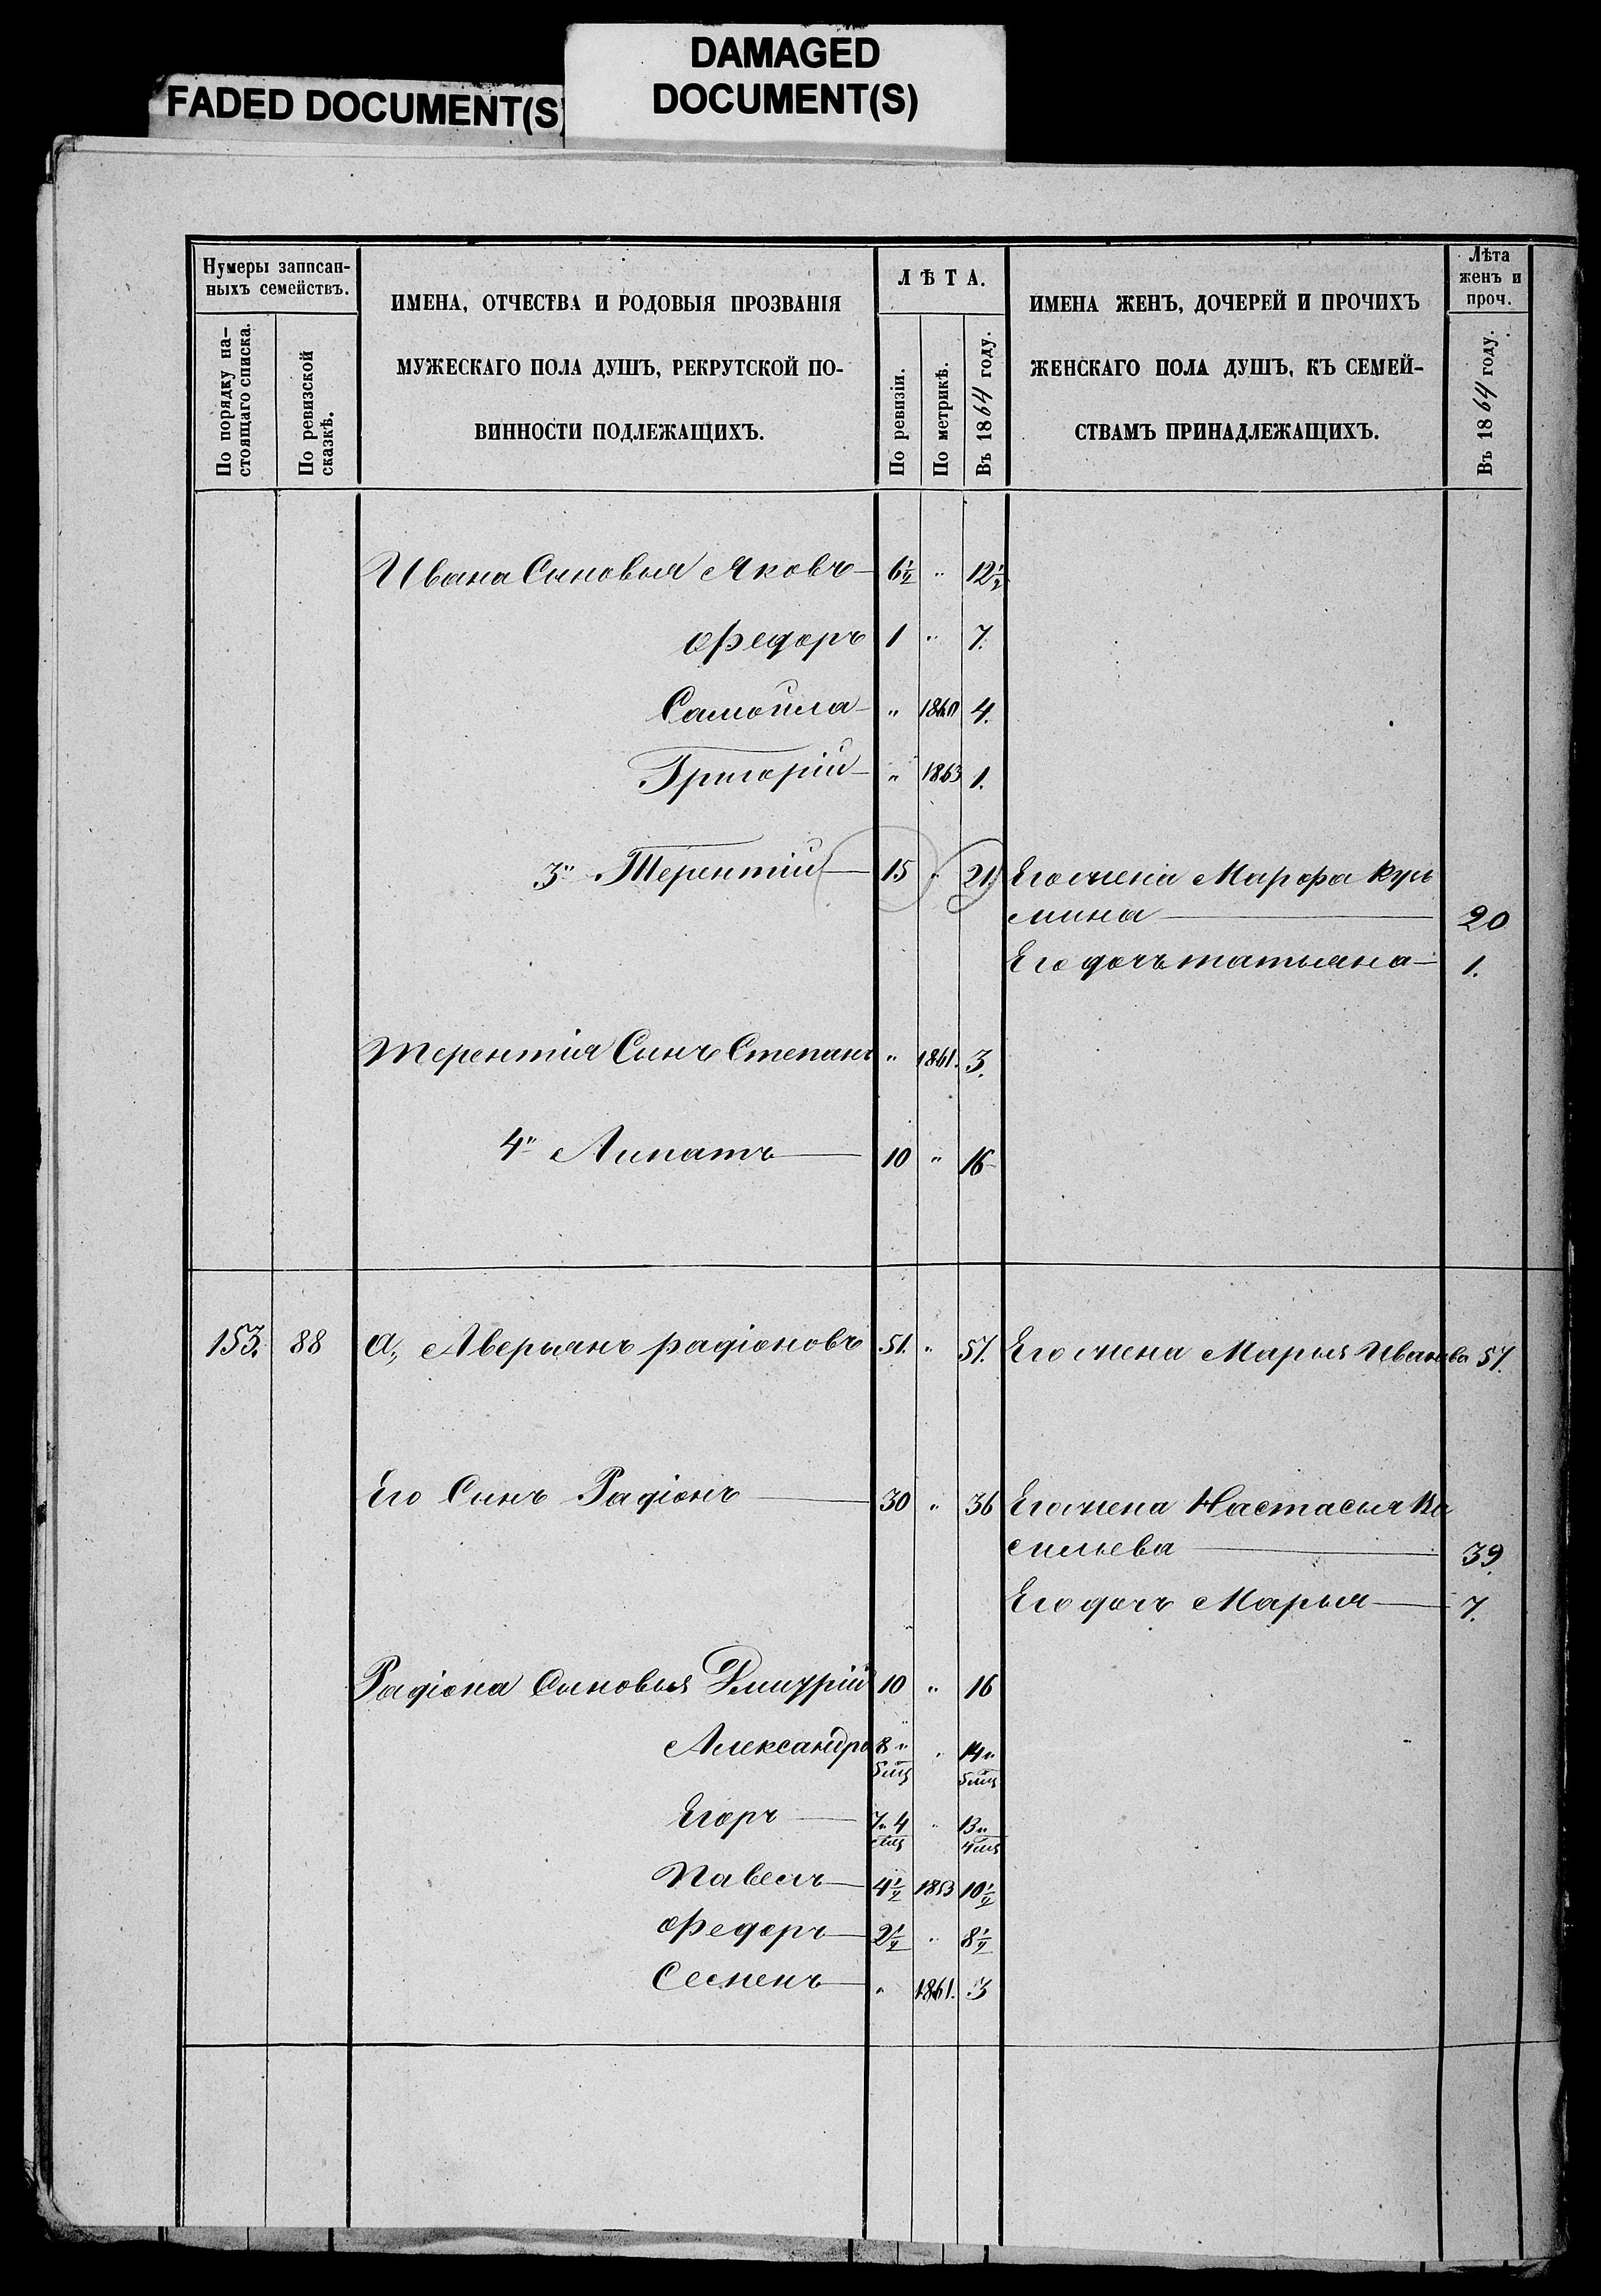 FADED DOCUMENT(S)
DAMAGED
DOCUMENT(S)
Нумеры записан-
ныхъ семействъ.
По порядку на-
стоящаго списка.
По ревизской
сказкѣ.
ИМЕНА, ОТЧЕСТВА И РОДОВЫЯ ПРОЗВАНІЯ
МУЖЕСКАГО ПОЛА ДУШЪ, РЕКРУТСКОЙ ПО-
ВИННОСТИ ПОДЛЕЖАЩИХЪ.
ЛѢТА.
По ревизіи.
По метрикѣ.
Въ 1864 году.
ИМЕНА ЖЕНЪ, ДОЧЕРЕЙ И ПРОЧИХЪ
ЖЕНСКАГО ПОЛА ДУШЪ, КЪ СЕМЕЙ-
СТВАМЪ ПРИНАДЛЕЖАЩИХЪ.
Лѣта
женъ и
проч.
Въ 1864 году.
Ивана Сыновья Яковъ 6½ " 12½
Федоръ 1 " 7.
Самойла " 1860 4.
Григорій " 1863 1.
3" Терентій 15 " 21 Его жена Марфа Кузь
мина 20
Его дочь татьяна 1.
Терентія Сынъ Степанъ " 1861. 3.
4" Липатъ 10 " 16
153. 88 а, Аверьянъ радіоновъ 51. " 57. Его жена Марья Иванова 57.
Его Сынъ Радіонъ 30 " 36 Его жена Настасья Ва
сильева 39.
Его дочь Марья 7.
Радіона Сыновья Дмитрій 10 " 16
Александръ 8 " " 14 "
5 мц 5 мц
Егоръ 7 " 4 " 13 "
мц 4 мц
Павелъ 4½ 1853 10½
Федоръ 2½ " 8½
Семенъ " 1861. 3